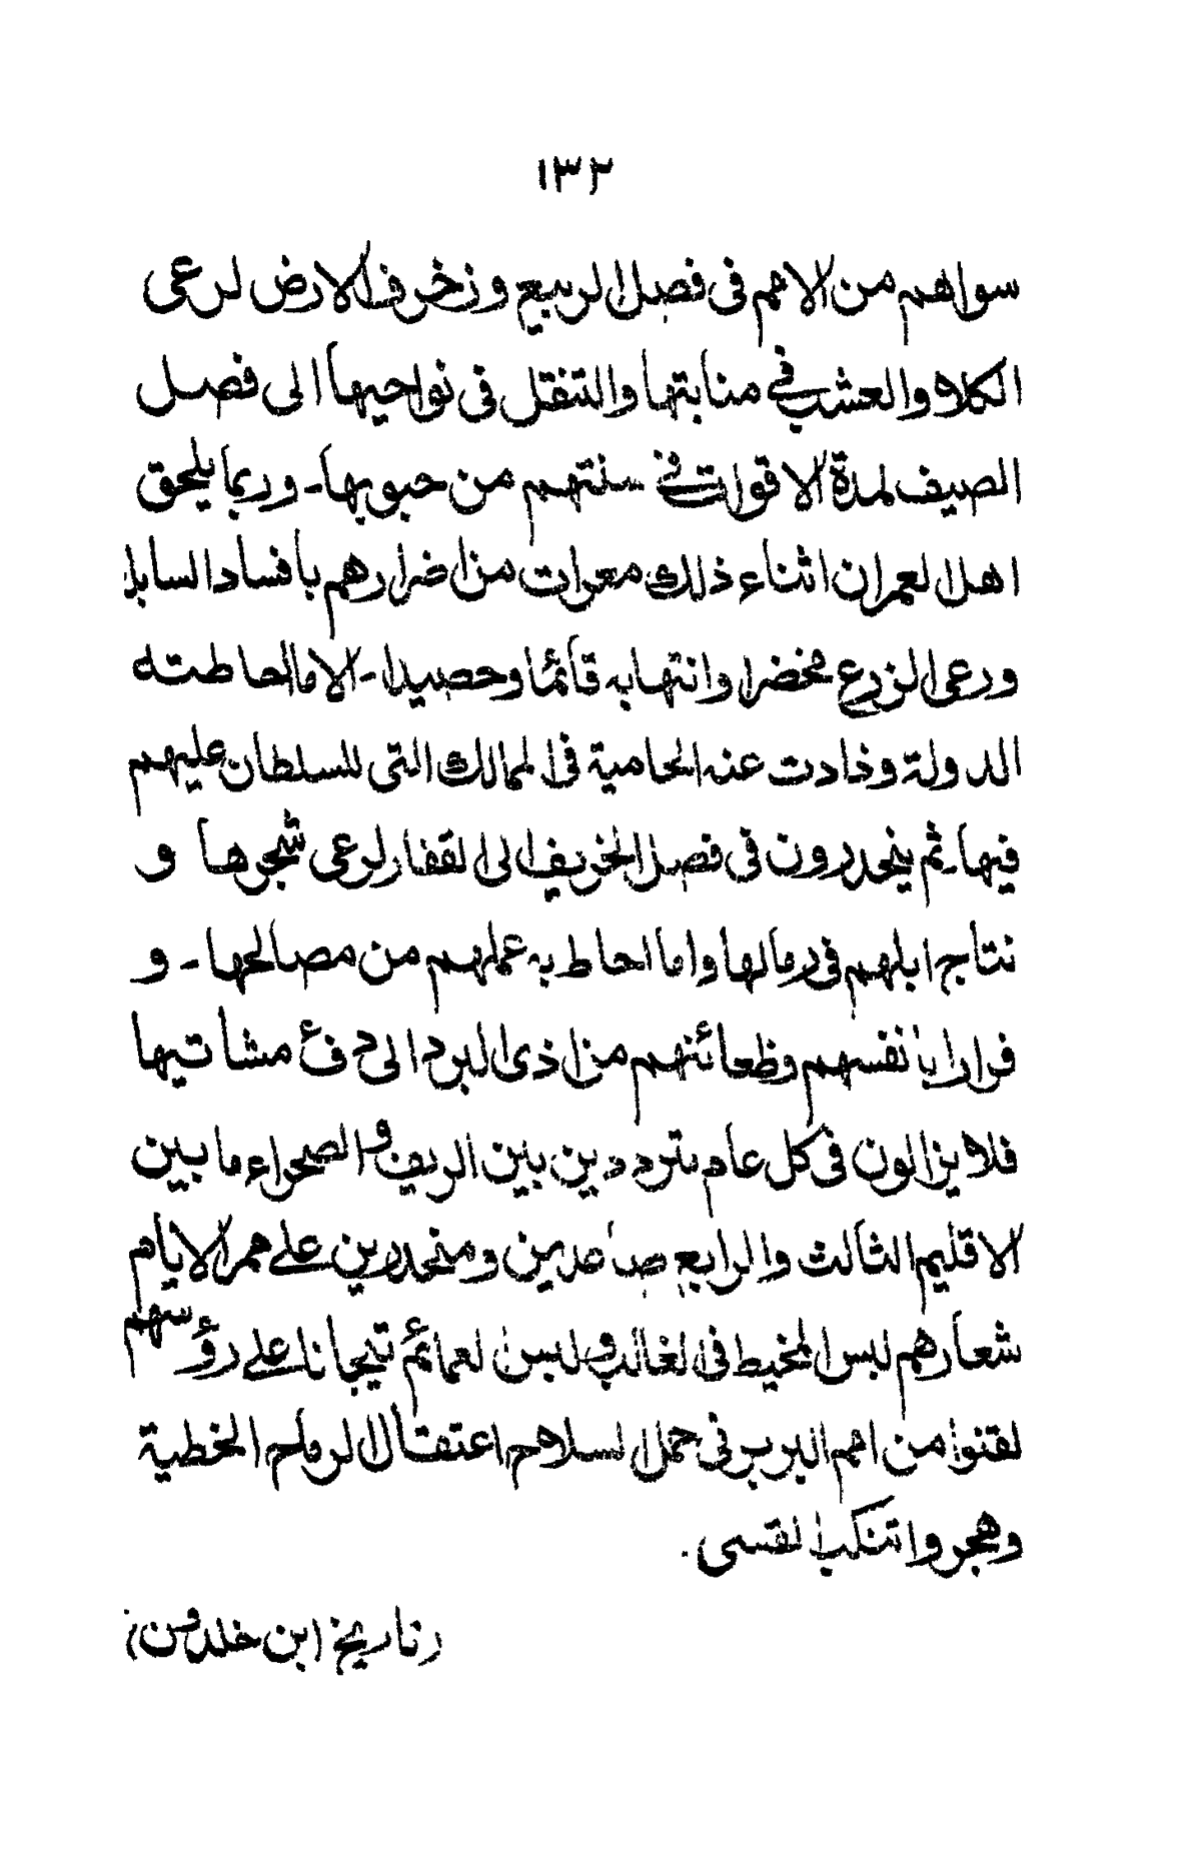 ١٣٢
سواهم من الامم فى فصل الربيع وزخرف الارض لرعى
الكلاء والعشب فى منابتها والتنقل فى نواحيها الى فصل
الصيف لمدة الاقوات فى سنتهم من حبوبها۔ وربما يلحق
اهل العمران اثناء ذلك معرات من اضرارهم بافساد السابلة
ورعى الزرع مخضرا وانتهابه قائما وحصيدا۔ الا ما احاطته
الدولة وذادت عنه الحامية فى الممالك التى للسلطان عليهم
فيها۔ ثم ينحدرون فى فصل الخريف الى القفار لرعى شجرها و
نتاج ابلهم فى رمالها وما احاط به عملهم من مصالحها۔ و
فرارا بانفسهم وظعائنهم من اذى البرد الى دفء مشاتيها
فلا يزالون فى كل عام مترددين بين الريف والصحراء ما بين
الاقليم الثالث والرابع صاعدين ومنحدرين على ممر الايام
شعارهم لبس المخيط فى الغالب ولبس العمائم تيجانا على رؤسهم
لقنوا من امم البربر فى حمل السلاح اعتقال الرماح الخطية
وهجروا تنكب القسى.
(تاريخ (ابن خلدون)